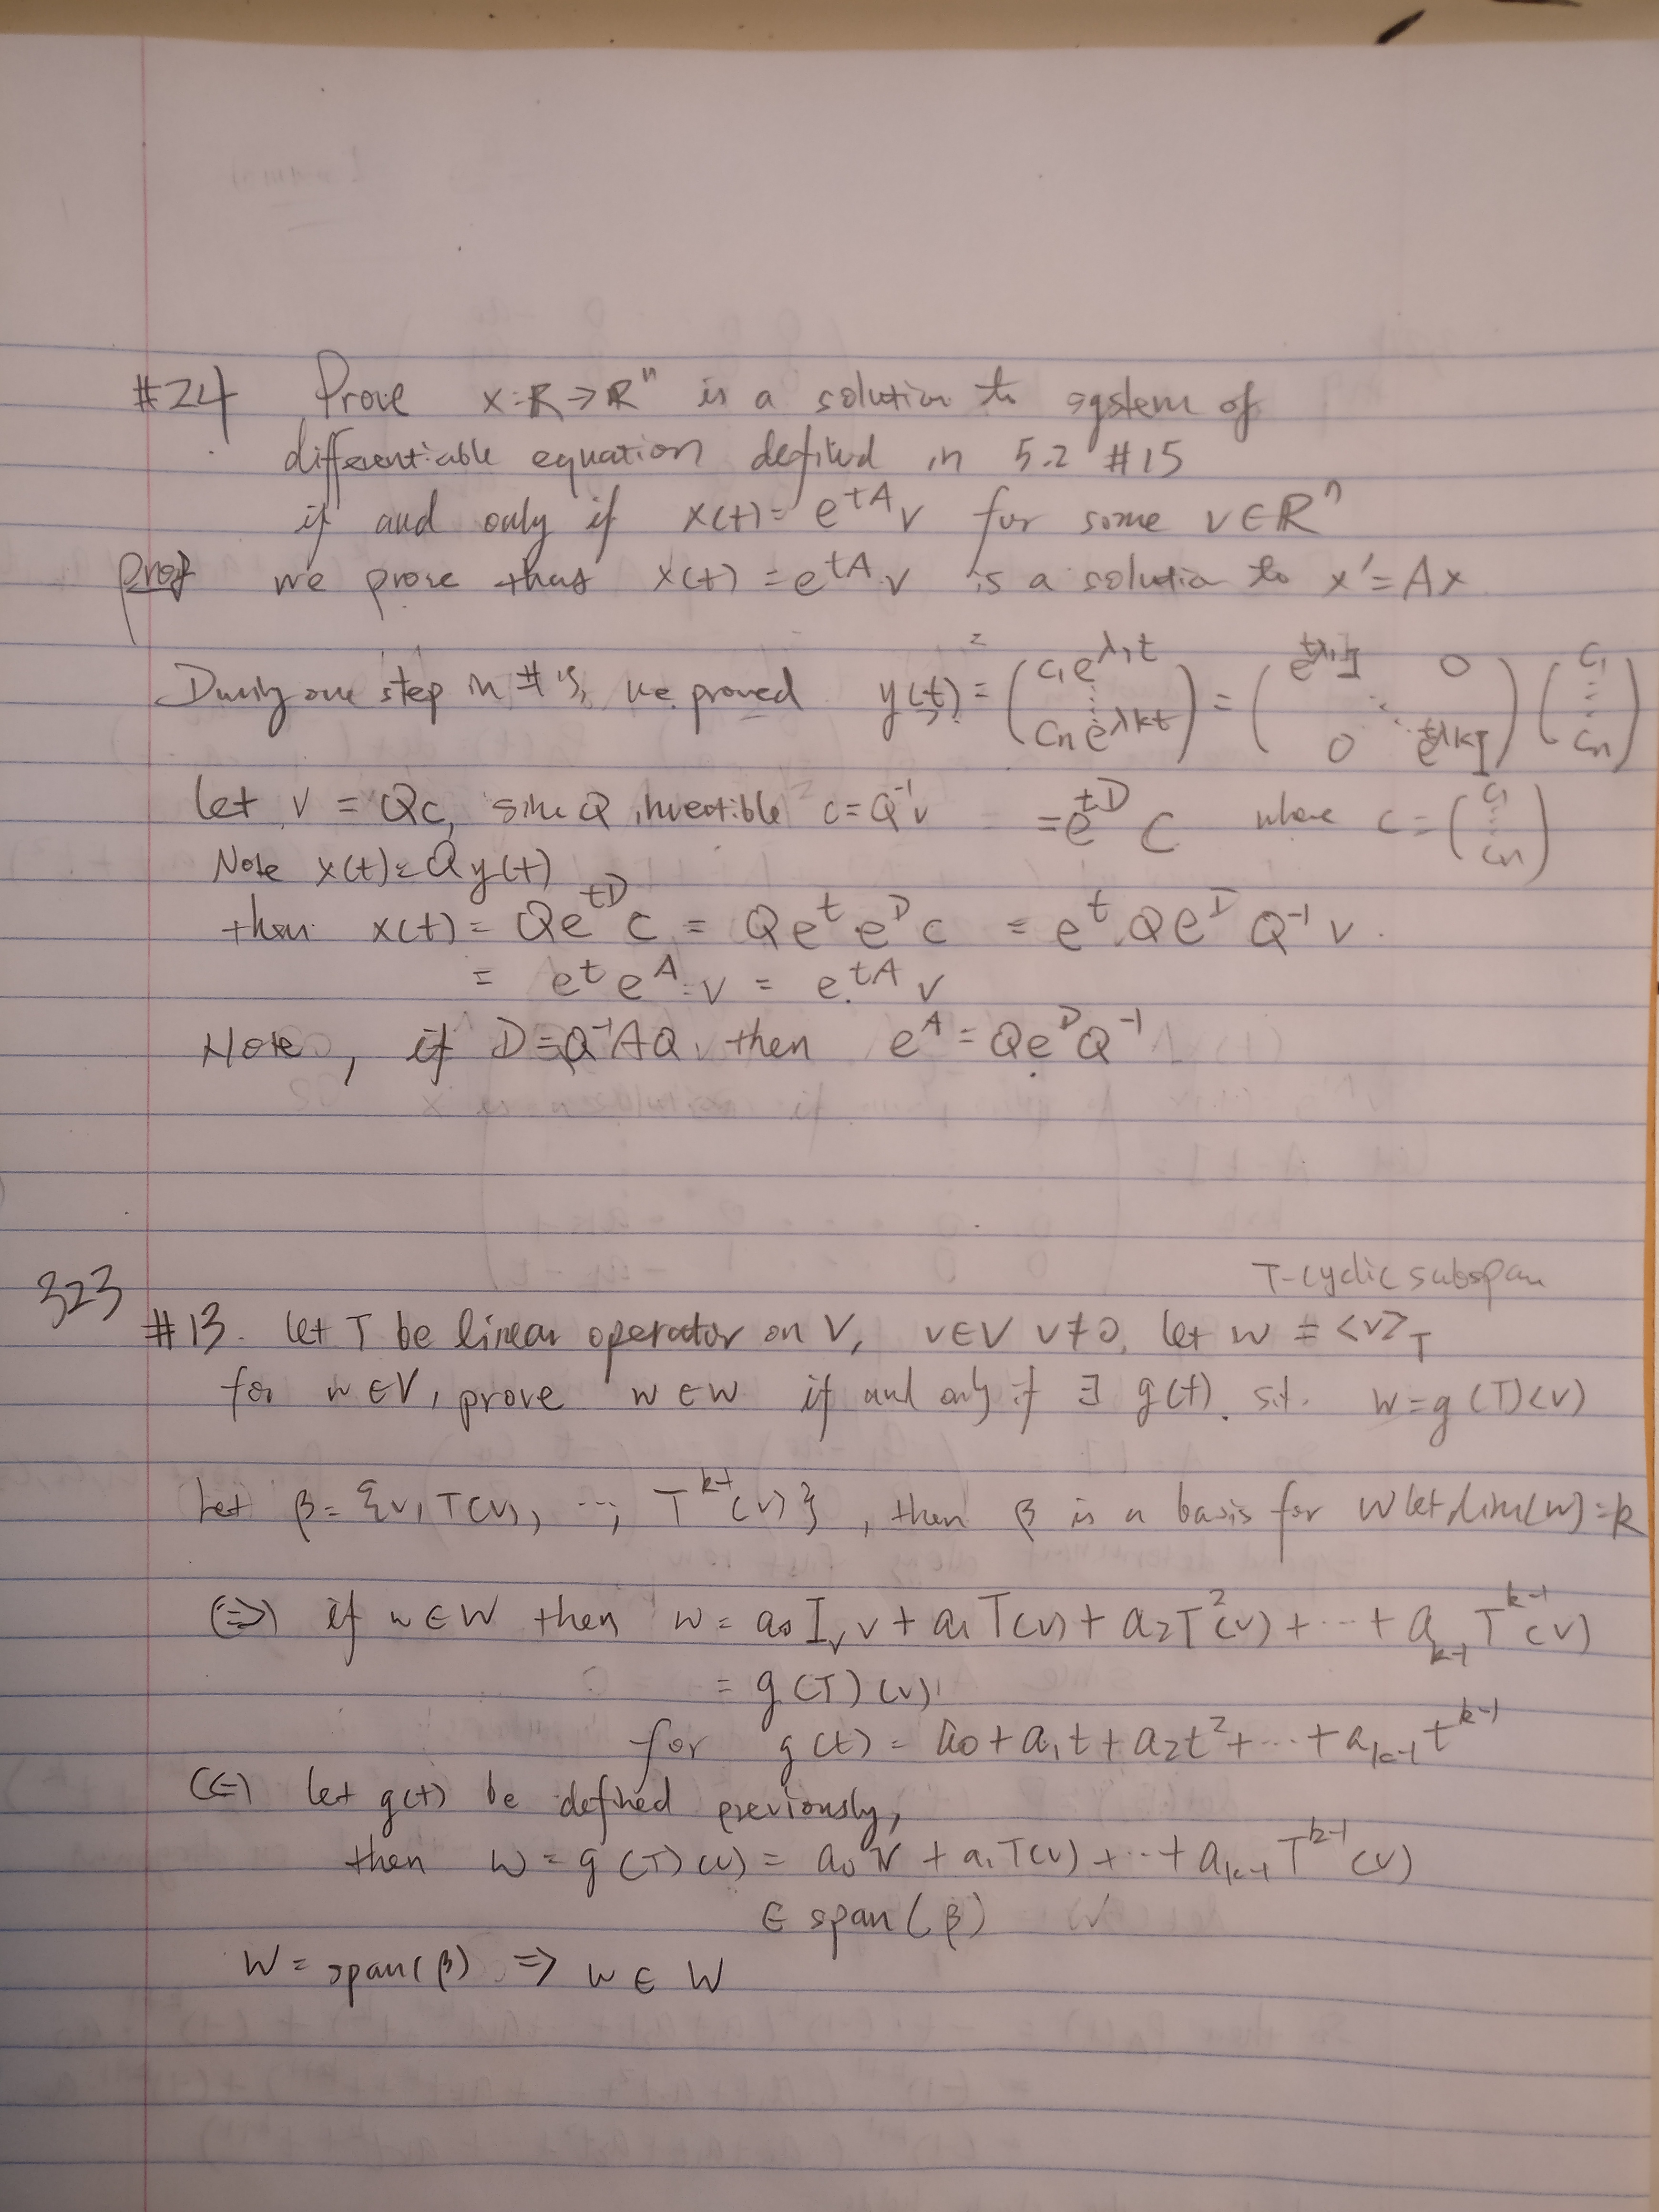 #24 Prove x:R→Rⁿ is a solution to system of
differentiable equation defined in 5.2 #15
if and only if x(t) = e^{tA} v for some v∈Rⁿ
prof we prove that x(t) = e^{tA} v is a solution to x' = Ax
During one step in #15, we proved y(t) = (c₁e^{λ₁t} ⋮ cₙe^{λkt}) = (e^{tλ₁I} 0 ⋱ 0 e^{tλkI}) (c₁ ⋮ cₙ)
let v = Qc, since Q invertible c = Q⁻¹v = e^{tD} C where c = (c₁ ⋮ cₙ)
Note x(t) = Qy(t)
then x(t) = Qe^{tD} c = Qe^t e^D c = e^t Qe^D Q⁻¹ v.
= e^t e^A v = e^{tA} v
Note, if D = Q⁻¹AQ, then e^A = Qe^D Q⁻¹
T-cyclic subspan
323
#13. let T be linear operator on V, v∈V v≠0, let W = <v>_T
for w∈V, prove w∈W if and only if ∃ g(t). s.t. w = g(T)(v)
Let β = {v, T(v), ..., T^{k-1}(v)}, then β is a basis for W let dim(W) = k
(⇒) if w∈W then w = a₀ I_v v + a₁T(v) + a₂T²(v) + ⋯ + a_{k-1} T^{k-1}(v)
= g(T)(v)
for g(t) = a₀ + a₁t + a₂t² + ⋯ + a_{k-1} t^{k-1}
(⇐) let g(t) be defined previously,
then w = g(T)(v) = a₀v + a₁T(v) + ⋯ + a_{k-1} T^{k-1}(v)
∈ span(β)
W = span(β) ⇒ w ∈ W